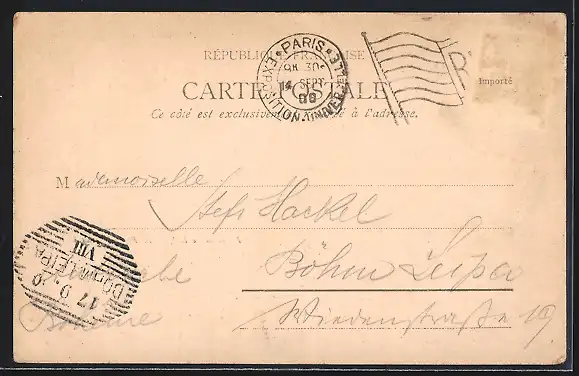 RÉPUBLIQUE FRANÇAISE
PARIS
EXPOSITION UNIVERSELLE
8H 30
14 SEPT
00
R
Importé
CARTE POSTALE
Ce côté est exclusivement réservé à l'adresse.
Mademoiselle
Stefi Hackel
Böhm Leipa
Bohème
Wiedenstraße 19
BÖHM. LEIPA
VIII
17 9 00